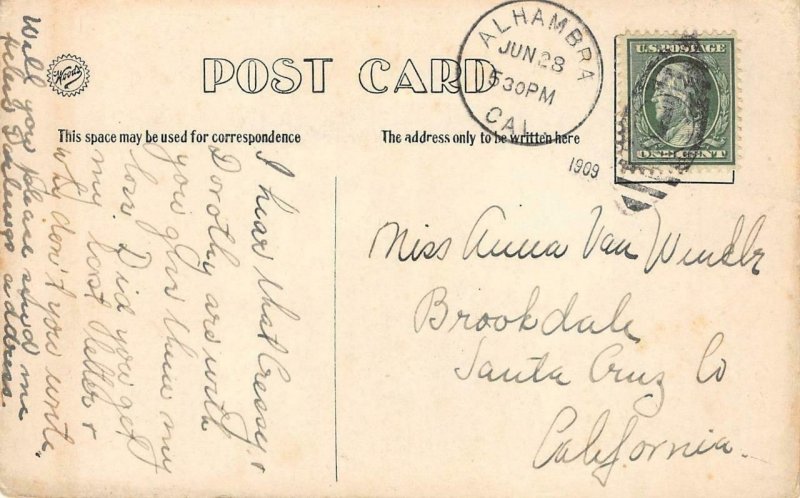 Woods
POST CARD
ALHAMBRA
JUN 28
530PM
CAL.
U.S. POSTAGE
ONE CENT
This space may be used for correspondence
The address only to be written here
1909
I hear that Cressy +
Dorothy are with
you give them my
love. Did you get
my last letter +
why don't you write.
Will you please send me
address.
Miss Anna Van Winkle
Brookdale
Santa Cruz Co
California.